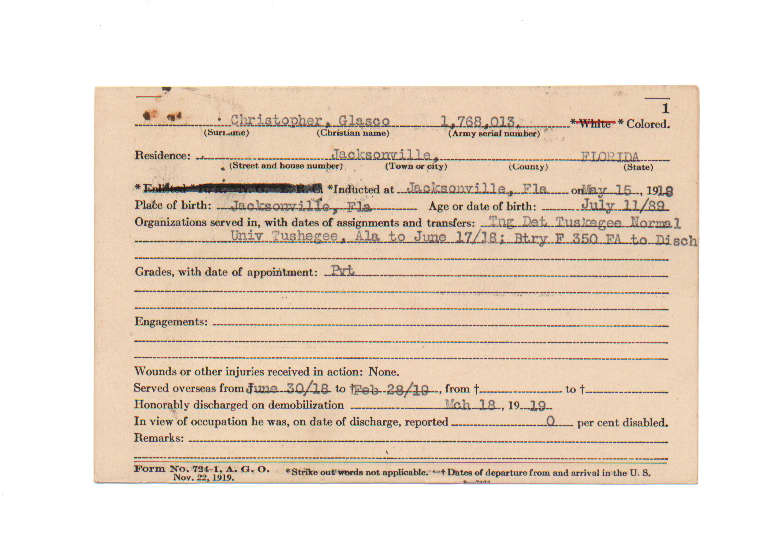 1
Christopher, Glasco 1,768,013. *White * Colored.
(Surname) (Christian name) (Army serial number)
Residence: Jacksonville, FLORIDA
(Street and house number) (Town or city) (County) (State)
* Enlisted * R. A. N. G. E. R. C. *Inducted at Jacksonville, Fla on May 15, 1918
Place of birth: Jacksonville, Fla Age or date of birth: July 11/89
Organizations served in, with dates of assignments and transfers: Tng Det Tuskegee Normal
Univ Tushegee, Ala to June 17/18; Btry F 350 FA to Disch
Grades, with date of appointment: Pvt
Engagements:
Wounds or other injuries received in action: None.
Served overseas from June 30/18 to †Feb 28/19, from † to †
Honorably discharged on demobilization Mch 18, 1919
In view of occupation he was, on date of discharge, reported 0 per cent disabled.
Remarks:
Form No. 724-1, A. G. O. *Strike out words not applicable. † Dates of departure from and arrival in the U. S.
Nov. 22, 1919.